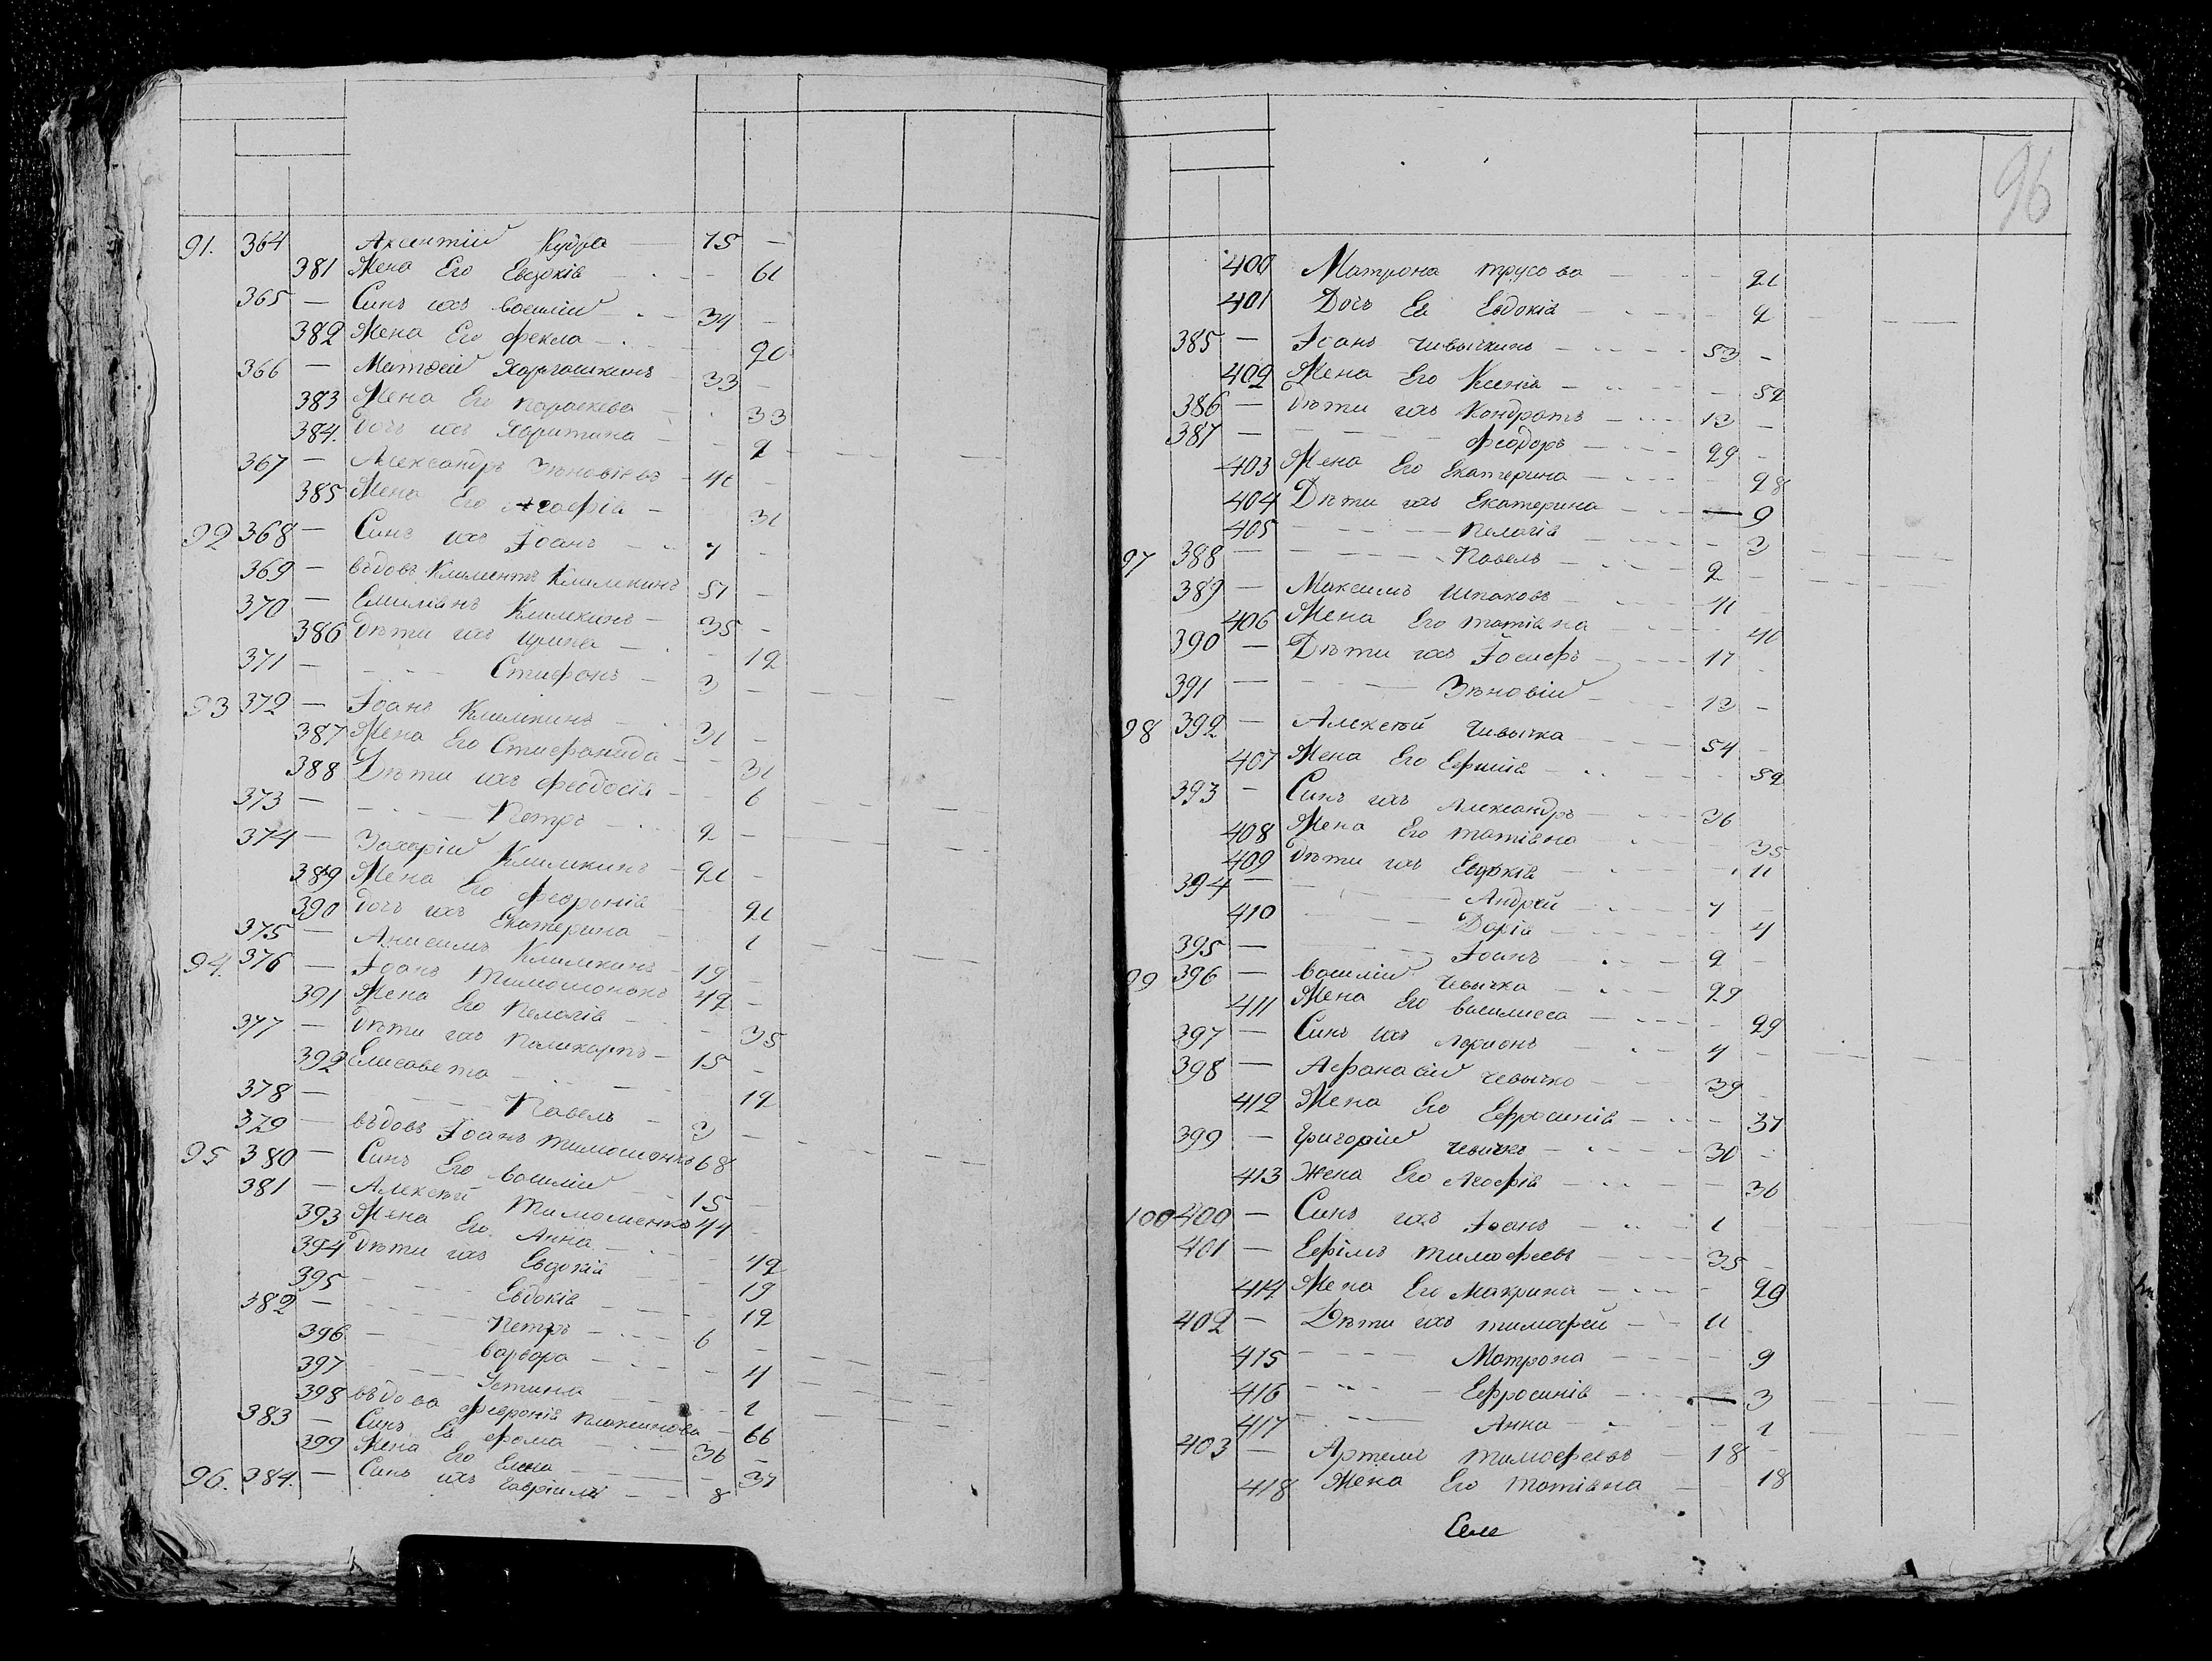 91. 364 Аксентій Кудра 75 —
381 Жена Его Евдокія — 61
365 — Синъ ихъ Василій 34 —
382 Жена Его Фекла — 20
366 — Матвей Харгошкинъ 33 —
383 Жена Его Параскева — 33
384. Дочь ихъ Харитина — 2
367 — Александръ Зѣновіевъ 41 —
385 Жена Его Агафія — 31
92 368 — Синъ ихъ Іоанъ 7 —
369 — Въдовъ Климентъ Климкинъ 51 —
370 — Емиліанъ Климкинъ 35 —
386 Дѣти ихъ Ирина — 12
371 — Стифонъ 3 —
93 372 — Іоанъ Климкинъ 31 —
387 Жена Его Стифанида — 31
388 Дѣти ихъ Феодосія — 6
373 — Петръ 2 —
374 — Захарій Климкинъ 21 —
389 Жена Его Февронія — 21
390 Дочь ихъ Екатерина — 1
375 — Анисимъ Климкинъ 19 —
94. 376 — Іоанъ Тимошонокъ 42 —
391 Жена Его Пелагія — 35
377 — Дѣти ихъ Поликарпъ 15 —
392 Елисавета — 12
378 — Павелъ 3 —
379 — Въдовъ Іоанъ Тимошонкъ 68
95 380 — Синъ Его Василій 15 —
381 — Алексѣй Тимошенкъ 44 —
393 Жена Его Анна — 42
394 Дѣти ихъ Евдокія — 19
395 — Евдокія — 12
382 — Петръ 6 —
396 — Варвара — 4
397 — Устина — 1
398 Въдова Февронія Плаксинова — 66
383 — Синъ Ея Фома 36 —
399 Жена Его Елена — 37
96. 384. — Синъ ихъ Гавріилъ 8
96
400 Матрона Трусова — 21
401 Дочь Ея Евдокія — 2
385 — Іоанъ Чивычкинъ 53 —
402 Жена Его Ксенія — 52
386 — Дѣти ихъ Кондратъ 13 —
387 — Феодоръ 29 —
403 Жена Его Екатерина — 28
404 Дѣти ихъ Екатерина — 9
405 — Пелагія — 3
97 388 — Павелъ 2 —
389 — Максимъ Шпаковъ 41 —
406 Жена Его Татіяна — 40
390 — Дѣти ихъ Іосифъ 17 —
391 — Зѣновій 13 —
98 392 — Алексѣй Чивычка 54 —
407 Жена Его Ефимія — 52
393 — Синъ ихъ Александръ 36
408 Жена Его Татіяна — 35
409 Дѣти ихъ Евдокія — 11
394 — Андрѣй 7 —
410 — Дарія — 4
395 — Іоанъ 2 —
99 396 — Василій Чевычка 29
411 Жена Его Василисса — 29
397 — Синъ ихъ Ларионъ 4 —
398 — Афанасій Чевычко 39 —
412 Жена Его Ефросинія — 37
399 — Григорій Чевычкъ 30 —
413 Жена Его Агафія — 36
100 400 — Синъ ихъ Іоанъ 1
401 — Ефімъ Тимофеевъ 35 —
414 Жена Его Макрина — 29
402 — Дѣти ихъ Тимофей 11
415 — Матрона — 9
416 — Ефросинія — 3
417 — Анна — 1
403 — Артемъ Тимофеевъ 18 —
418 Жена Его Татіяна — 18